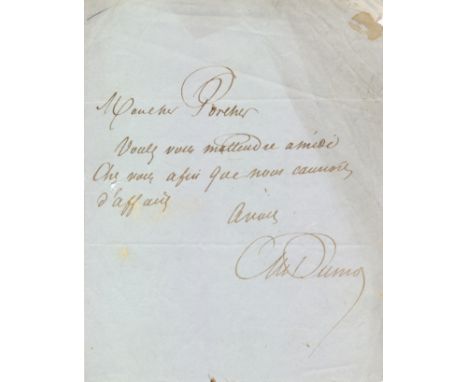 Mon cher Porcher
Voulez vous m'attendre a midi
Chez vous afin que nous causions
d'affaires
A vous
Alex Dumas